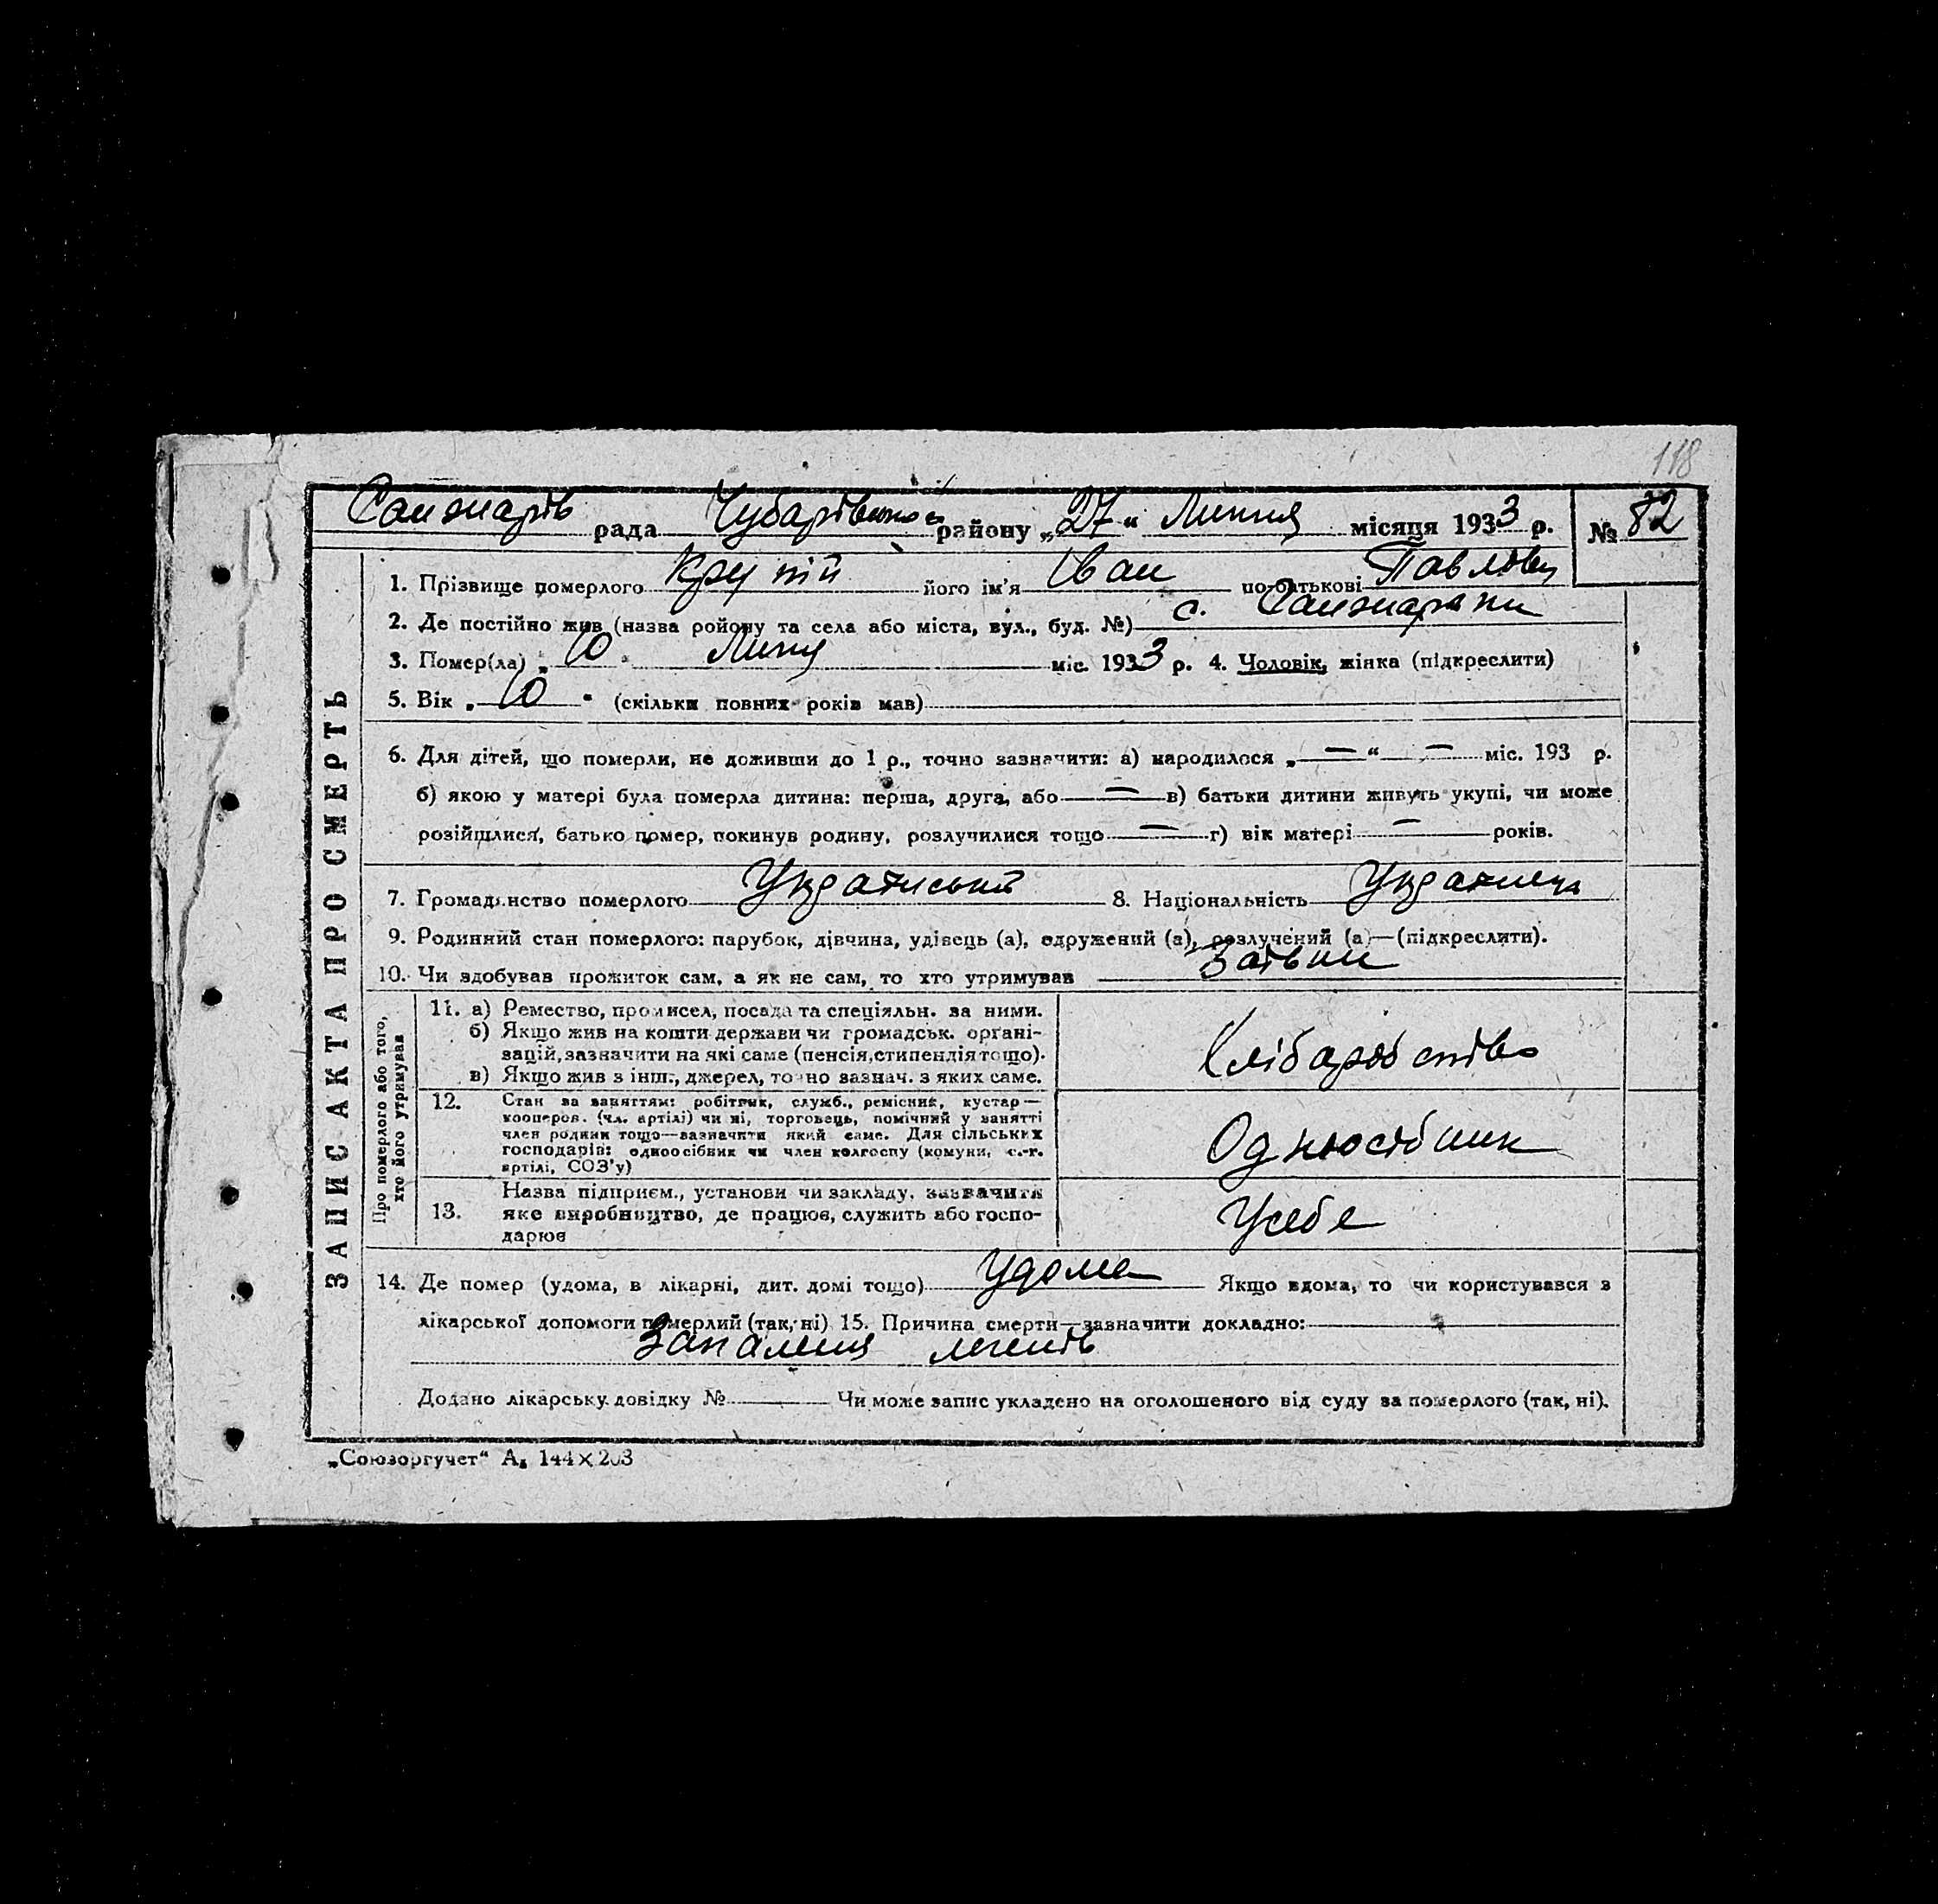 118
Санжарів рада Чубарівського району „27“ Липня місяця 1933 р. № 82
ЗАПИС АКТА ПРО СМЕРТЬ
1. Прізвище померлого Крупій його ім'я Іван по-батькові Павлов
2. Де постійно жив (назва ройону та села або міста, вул., буд. №) с. Санжарівки
3. Помер(ла) „10 Липня міс. 1933 р. 4. Чоловік, жінка (підкреслити)
5. Вік „10“ (скільки повних років мав)
6. Для дітей, що померли, не доживши до 1 р., точно зазначити: а) народилося „—“ — міс. 193 р.
б) якою у матері була померла дитина: перша, друга, або — в) батьки дитини живуть укупі, чи може
розійшлися, батько помер, покинув родину, розлучилися тощо — г) вік матері — років.
7. Громадянство померлого Український 8. Національність
9. Родинний стан померлого: парубок, дівчина, удівець (а), одружений (а), розлучений (а)—(підкреслити).
10. Чи здобував прожиток сам, а як не сам, то хто утримував
Про померлого або того,
хто його утримував
11. а) Ремество, промисел, посада та спеціяльн. за ними.
б) Якщо жив на кошти держави чи громадськ. органі-
зацій, зазначити на які саме (пенсія, стипендія тощо).
в) Якщо жив з інш., джерел, точно зазнач. з яких саме.
Хлібаробство
12. Стан за заняттям: робітник, служб., ремісник, кустар—
кооперов. (чл. артілі) чи ні, торговець, помічний у занятті
член родини тощо—зазначити який саме. Для сільських
господарів: одноосібник чи член колгоспу (комуни, с.-г.
артілі, СОЗ'у)
Одноосібник
13. Назва підприєм., установи чи закладу, зазначити
яке виробництво, де працює, служить або госпо-
дарює
Усебе
14. Де помер (удома, в лікарні, дит. домі тощо) Удома Якщо вдома, то чи користувався з
лікарської допомоги померлий (так, ні) 15. Причина смерти—зазначити докладно:
Запалення легенів
Додано лікарську довідку № Чи може запис укладено на оголошеного від суду за померлого (так, ні).
„Союзоргучет“ А₅ 144×203